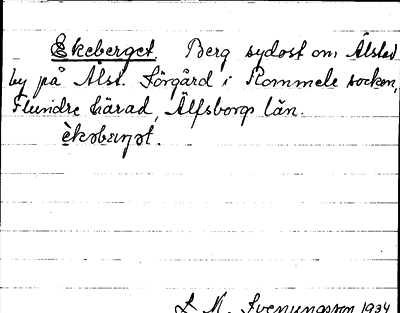 Ekeberget. Berg sydost om Ålstad
by på Ålst. Förgård i Rommele socken,
Flundre härad, Älfsborgs län.
èkəbærjət.
L. M. Svenungsson 1934